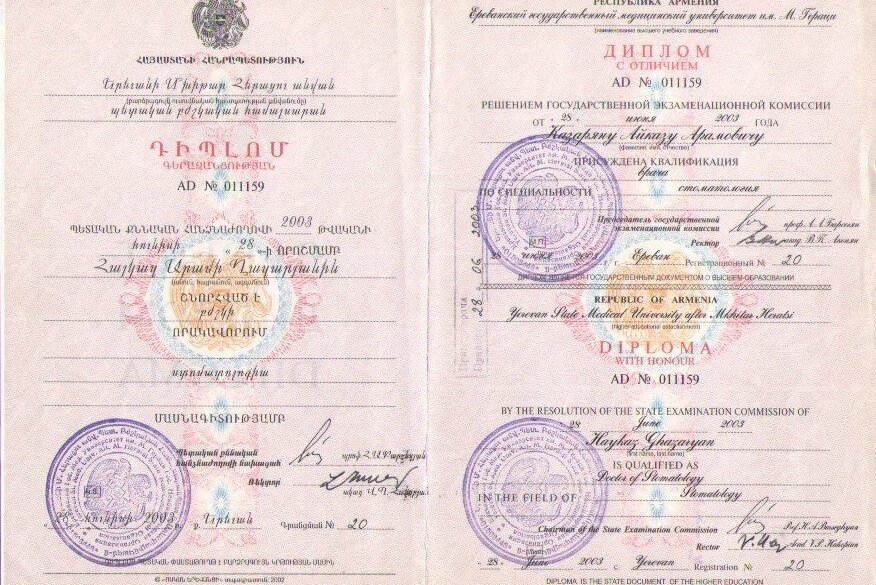 ՀԱՅԱՍՏԱՆԻ ՀԱՆՐԱՊԵՏՈՒԹՅՈՒՆ
Երևանի Մխիթար Հերացու անվան
(բարձրագույն ուսումնական հաստատության անվանումը)
պետական բժշկական համալսարան
ԴԻՊԼՈՄ
ԳԵՐԱԶԱՆՑՈՒԹՅԱՆ
AD № 011159
ՊԵՏԱԿԱՆ ՔՆՆԱԿԱՆ ՀԱՆՁՆԱԺՈՂՈՎԻ 2003 ԹՎԱԿԱՆԻ
հունիսի „28“-ի ՈՐՈՇՄԱՄԲ
Հայկազ Արամի Ղազարյանին
(անուն, հայրանուն, ազգանուն)
ՇՆՈՐՀՎԱԾ Է
բժշկի
ՈՐԱԿԱՎՈՐՈՒՄ
ստոմատոլոգիա
ՄԱՍՆԱԳԻՏՈՒԹՅԱՄԲ
Պետական քննական
հանձնաժողովի նախագահ
Ռեկտոր
28 հունիսի 2003 թ. ք. Երևան Գրանցման № 20
© «ՈՍԿԱՆ ԵՐԵՎԱՆՑԻ» տպագրատուն, 2002
РЕСПУБЛИКА АРМЕНИЯ
Ереванский государственный медицинский университет им. М. Гераци
(наименование высшего учебного заведения)
ДИПЛОМ
С ОТЛИЧИЕМ
AD № 011159
РЕШЕНИЕМ ГОСУДАРСТВЕННОЙ ЭКЗАМЕНАЦИОННОЙ КОМИССИИ
ОТ „28“ июня 2003 ГОДА
Казаряну Айказу Арамовичу
(фамилия, имя, отчество)
ПРИСУЖДЕНА КВАЛИФИКАЦИЯ
врача
ПО СПЕЦИАЛЬНОСТИ стоматология
Председатель государственной
экзаменационной комиссии проф. А.А.Барсегян
Ректор В.П. Акопян
28 июня 2003 г. г. Ереван Регистрационный № 20
ДИПЛОМ ЯВЛЯЕТСЯ ГОСУДАРСТВЕННЫМ ДОКУМЕНТОМ О ВЫСШЕМ ОБРАЗОВАНИИ
28 06 2003
REPUBLIC OF ARMENIA
Yerevan State Medical University after Mkhitar Heratsi
(higher educational establishment)
DIPLOMA
WITH HONOUR
AD № 011159
BY THE RESOLUTION OF THE STATE EXAMINATION COMMISSION OF
28 June 2003
Haykaz Ghazaryan
(first name, last name)
IS QUALIFIED AS
Doctor of Stomatology
IN THE FIELD OF Stomatology
Chairman of the State Examination Commission Prof. H.A. Parseghyan
Rector Acad. V.P. Hakopian
28 June 2003 c. Yerevan Registration № 20
DIPLOMA IS THE STATE DOCUMENT OF THE HIGHER EDUCATION